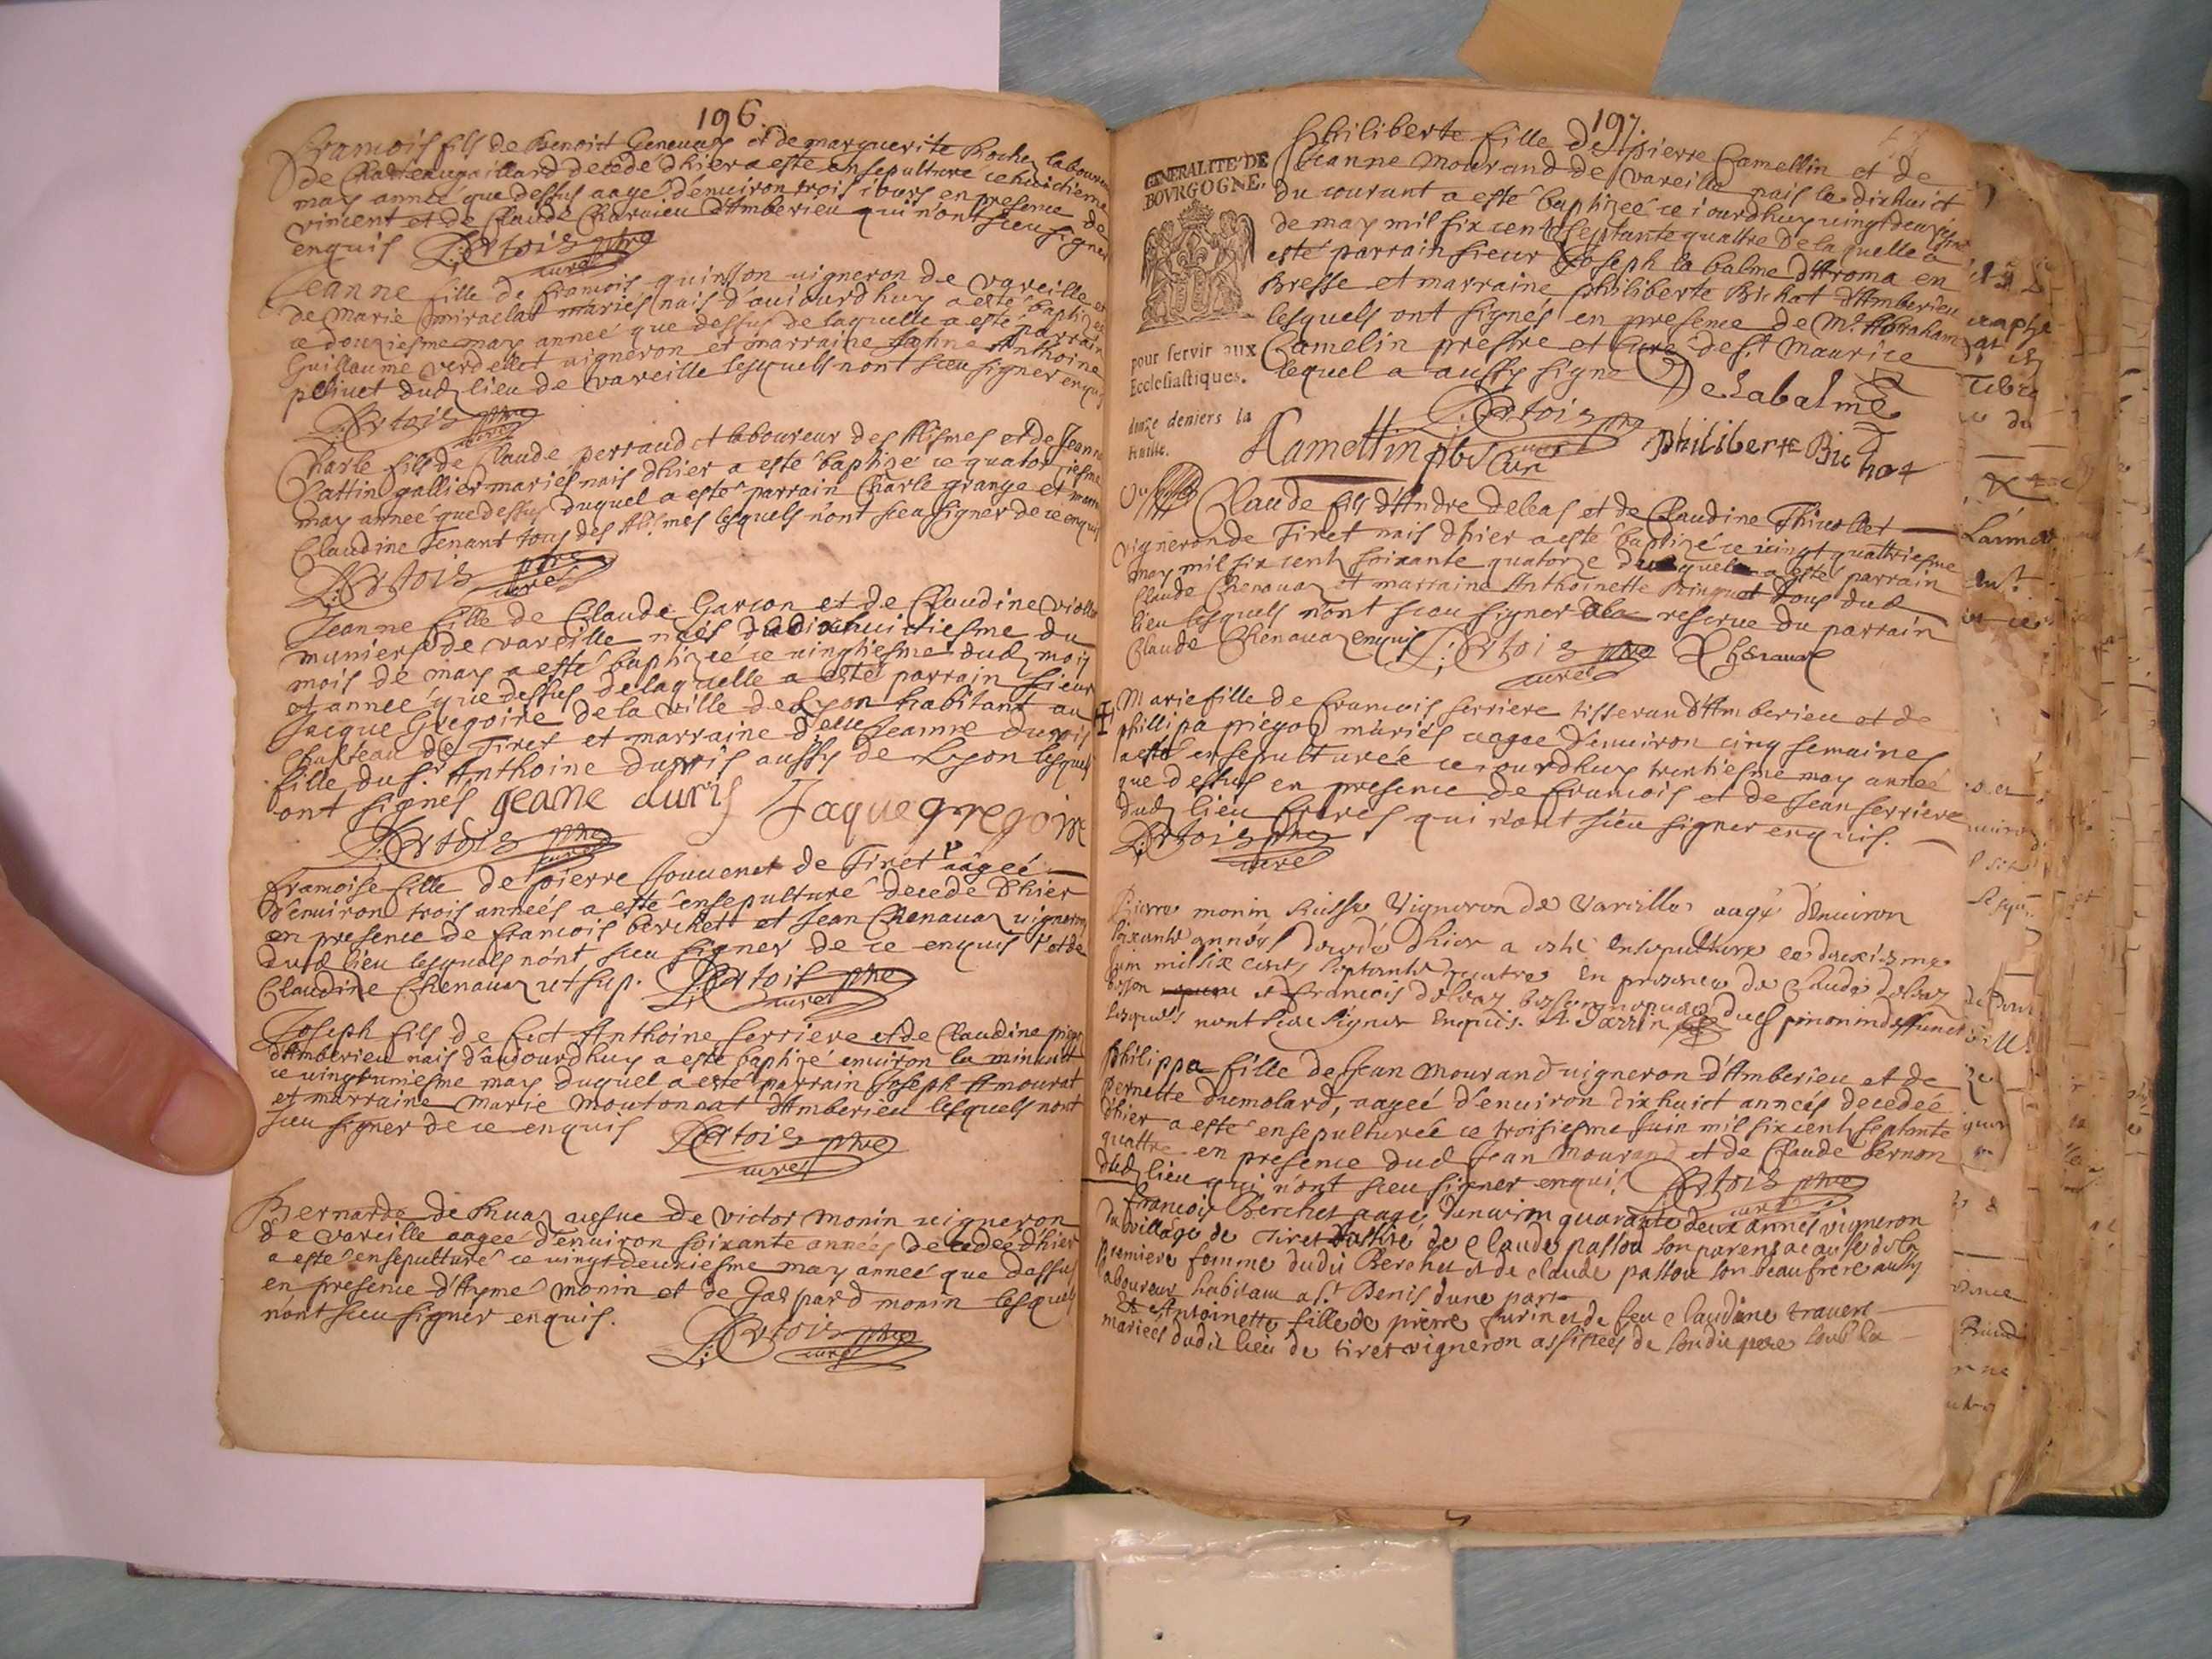 196.
Francois fils de Benoist Genevay et de marguerite Rochez laboureur
de Chasteaugaillard decede dhier a este ensepulture ce huictieme
may année que dessus aagé d'enuiron trois iours en presence de
vincent et de Claude Charuieu d'Amberieu qui n'ont sceu signer
enquis Artois pbre
curé
Jeanne fille de francois quinson uigneron de vareille et
de Marie miraclat mariés nais d'auiourdhuy a esté baptizée
ce douziesme may anneé que dessus de laquelle a esté parrain
Guillaume verdellet uigneron et marraine Anthoine
dud lieu de vareille lesquels nont sceu signer enquis
Artois pbre
curé
Charle fils de Claude perraud laboureur des Alismes et de Jeanne
gallier mariés nais dhier a esté baptizé ce quatorziesme
may anneé que dessus duquel a esté parrain Charle grange et marraine
Claudine Tenant tous des Alismes lesquels n'ont sceu signer de ce enquis
Artois pbre
curé
Jeanne fille de Claude Garcon et de Claudine
muniers de vareille neés du dixhuictiesme du
mois de may a esté baptizeé ce uingtiesme dud mois
et anneé que dessus de laquelle a esté parrain sieur
Jacque Gregoire de la ville de Lyon habitant au
chasteau de Tiret et marraine d.elle Jeanne
fille du s.r Anthoine aussy de Lyon lesquels
ont signés Jeane Jaque gregoire
Artois pbre
curé
francoise fille de pierre Jouuenet de Tiret aâgeé
d'enuiron trois anneés a esté ensepulturé decede d'hier
en presence de francois berchet et Jean Chenauaz uigneron
dud lieu lesquels n'ont sceu signer de ce enquis et de
Claudine Chenauaz ut sup. Artois pbre
curé
Joseph fils de Anthoine ferriere et de Claudine
d'Amberieu nais d'aujourdhuy a esté baptizé enuiron la minuict
ce uingtuniesme may duquel a esté parrain Joseph Amourat
et marraine Marie Moutonnat d'Amberieu lesquels nont
sceu signer de ce enquis
Artois pbre
curé
Bernarde de uefue de victor monin uigneron
de vareille aageé d'enuiron soixante anneés decedeé dhier
a esté ensepulturé ce uingtdeuxiesme may anneé que dessus
en presence d'Aymé monin et de Gaspard monin lesquels
n'ont sceu signer enquis.
Artois pbre
curé
197.
GENERALITE' DE
BOVRGOGNE.
pour servir aux
Ecclesiastiques.
douze deniers la
fueille.
Philiberte fille de pierre Camellin et de
Jeanne Mourand de vareille nais le dixhuict
du courant a esté baptizeé ce iourdhuy uingtdeuxiesme
de may mil six cents septante quattre de la quelle a
esté parrain sieur Joseph la balme d'Aroma en
Bresse et marraine philiberte Bichat d'Amberieu
lesquels ont signés en presence de M.e Abraham
Camelin prestre et curé de s.t Maurice
lequel a aussy signé Delabalme
Artois pbre
curé
Camettin pbr Cur philiberte Bichot
Claude fils d'Andre deleas et de Claudine Thiuollet
uigneron de Tiret nais dhier a esté baptizé ce uingt quattriesme
may mil six cents soixante quatorze duquel a esté parrain
Claude Chenauaz et marraine Anthoinette tous dud
lieu lesquels n'ont sceu signer reserue du parrain
Claude Chenauaz enquis Artois pbre Chenauaz
curé
Marie fille de francois ferriere tisserand d'Amberieu et de
phillipa mariés aageé d'enuiron cinq semaines
a esté ensepultureé ce iourdhuy trentiesme may anneé
que dessus en presence de francois et de Jean ferriere
dud lieu freres qui n'ont sceu signer enquis.
Artois pbre
curé
Pierre monin Vigneron de Vareilles aagé d'enuiron
soixante années decedé d'hier a esté ensepulturé ce deuxiesme
Juin mil six cents septante quatre en presence de Claude deleaz
et francois deleaz dud monin deffunct
lesquels nont sceu signer enquis.
philippa fille de Jean Mourand uigneron d'Amberieu et de
Pernette dumolard, aageé d'enuiron dixhuict anneés decedeé
d'hier a esté ensepultureé ce troisiesme Juin mil six cents septante
quattre en presence dud Jean Mourand et de Claude bernon
dud lieu qui n'ont sceu signer enquis Artois pbre
curé
francois Berchet aagé denuiron quarante deux années vigneron
du village de Tiret de Claude passou son parens a cause de la
premiere femme dudit Berchet et de claude passou son beau frere aussy
laboureur habitant a s.t Denis dune part
Et Antoinette fille de pierre et de feu claudine trauers
mariees dudit lieu de tiret vigneron assistees de sondit pere soub la